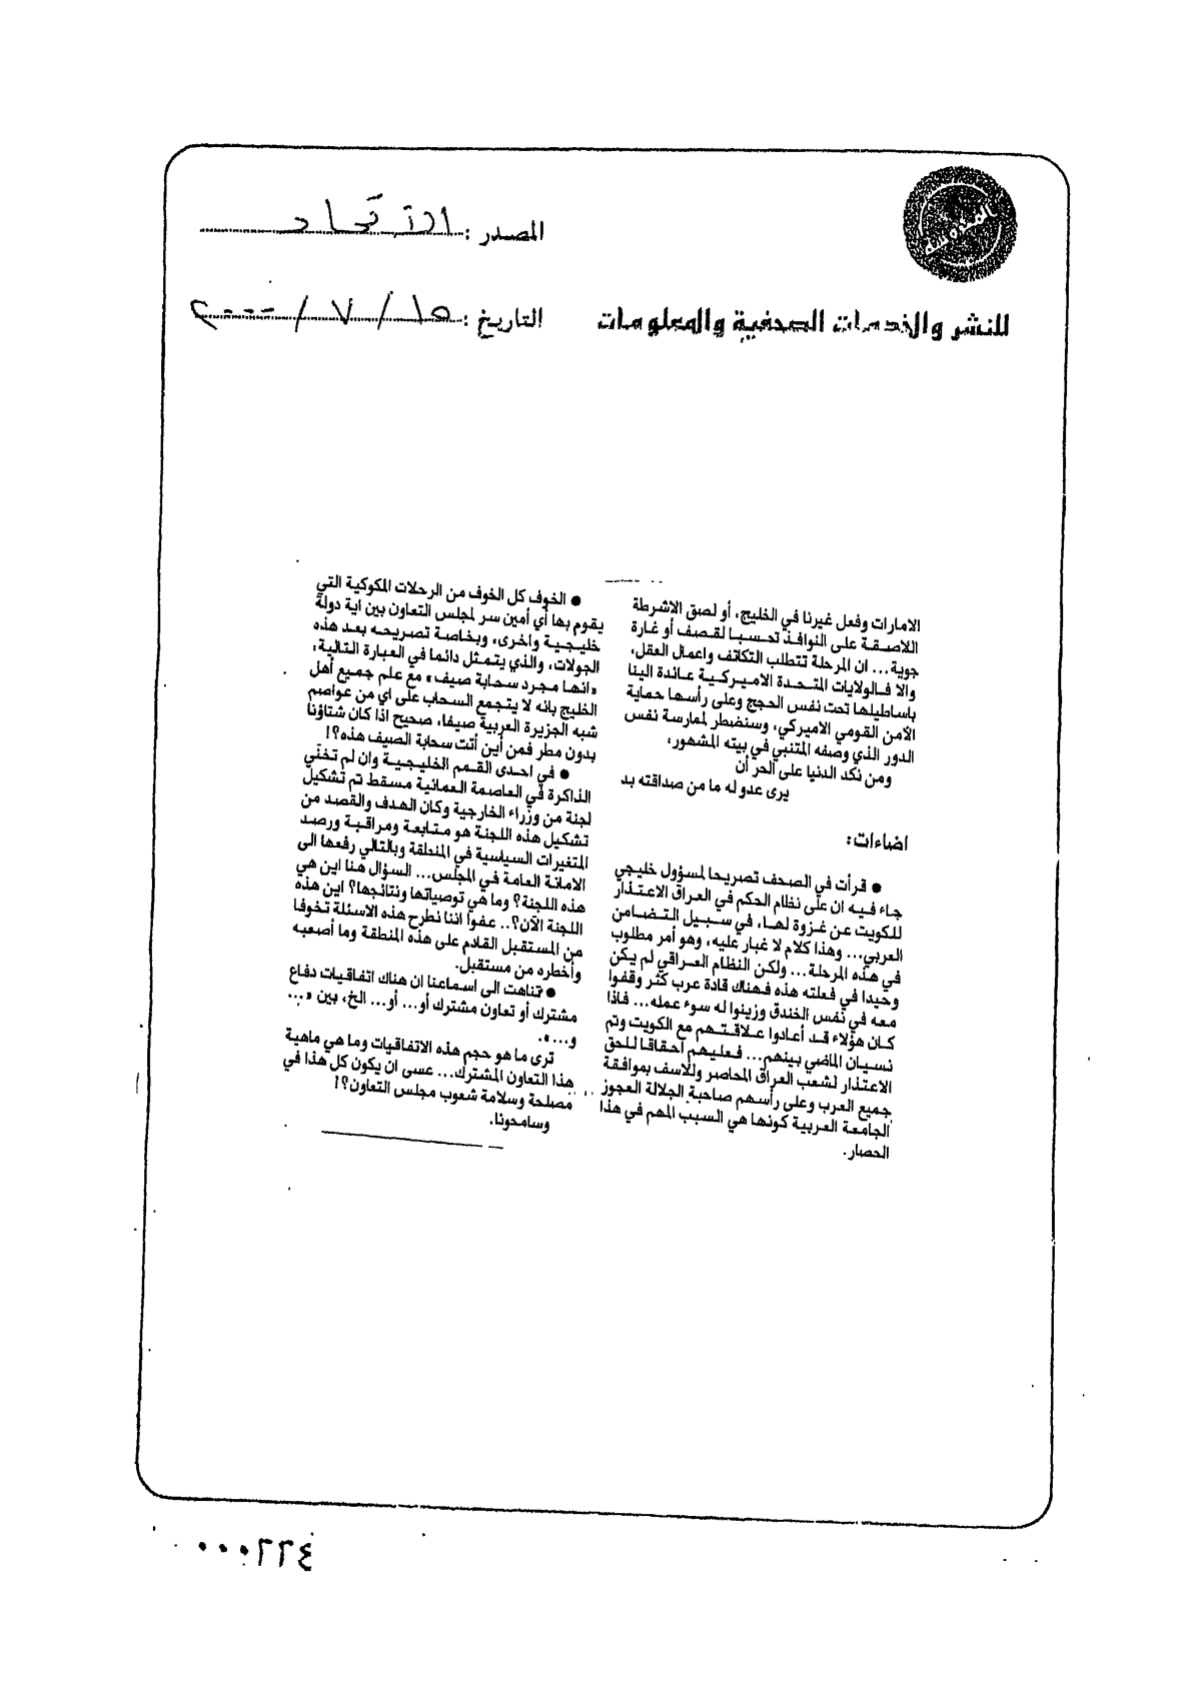 المصدر : الاتحاد
للنشر والخدمات الصحفية والمعلومات
التاريخ : ١٥ / ٧ / ٢٠٠٠
الامارات وفعل غيرنا في الخليج، أو لصق الاشرطة
اللاصقة على النوافذ تحسبا لقصف أو غارة
جوية... ان المرحلة تتطلب التكاتف واعمال العقل،
والا فالولايات المتحدة الاميركية عائدة الينا
باساطيلها تحت نفس الحجج وعلى رأسها حماية
الأمن القومي الاميركي، وسنضطر لممارسة نفس
الدور الذي وصفه المتنبي في بيته المشهور،
ومن نكد الدنيا على الحر أن
يرى عدو له ما من صداقته بد
اضاءات:
● قرأت في الصحف تصريحا لمسؤول خليجي
جاء فيه ان على نظام الحكم في العراق الاعتذار
للكويت عن غزوة لها، في سبيل التضامن
العربي... وهذا كلام لا غبار عليه، وهو أمر مطلوب
في هذه المرحلة... ولكن النظام العراقي لم يكن
وحيدا في فعلته هذه فهناك قادة عرب كثر وقفوا
معه في نفس الخندق وزينوا له سوء عمله... فاذا
كان هؤلاء قد أعادوا علاقتهم مع الكويت وتم
نسيان الماضي بينهم... فعليهم احقاقا للحق
الاعتذار لشعب العراق المحاصر وللأسف بموافقة
جميع العرب وعلى رأسهم صاحبة الجلالة العجوز
الجامعة العربية كونها هي السبب المهم في هذا
الحصار.
● الخوف كل الخوف من الرحلات المكوكية التي
يقوم بها أي أمين سر لمجلس التعاون بين اية دولة
خليجية واخرى، وبخاصة تصريحه بعد هذه
الجولات، والذي يتمثل دائما في العبارة التالية،
«انها مجرد سحابة صيف» مع علم جميع أهل
الخليج بانه لا يتجمع السحاب على اي من عواصم
شبه الجزيرة العربية صيفا، صحيح اذا كان شتاؤنا
بدون مطر فمن أين أتت سحابة الصيف هذه؟!
● في احدى القمم الخليجية وان لم تخنّي
الذاكرة في العاصمة العمانية مسقط تم تشكيل
لجنة من وزراء الخارجية وكان الهدف والقصد من
تشكيل هذه اللجنة هو متابعة ومراقبة ورصد
المتغيرات السياسية في المنطقة وبالتالي رفعها الى
الامانة العامة في المجلس... السؤال هنا اين هي
هذه اللجنة؟ وما هي توصياتها ونتائجها؟ اين هذه
اللجنة الآن؟.. عفوا اننا نطرح هذه الاسئلة تخوفا
من المستقبل القادم على هذه المنطقة وما أصعبه
وأخطره من مستقبل.
● تناهت الى اسماعنا ان هناك اتفاقيات دفاع
مشترك أو تعاون مشترك أو... أو... الخ، بين «...
و...».
ترى ما هو حجم هذه الاتفاقيات وما هي ماهية
هذا التعاون المشترك... عسى ان يكون كل هذا في
مصلحة وسلامة شعوب مجلس التعاون؟!
وسامحونا.
٠٠٠٦٦٤